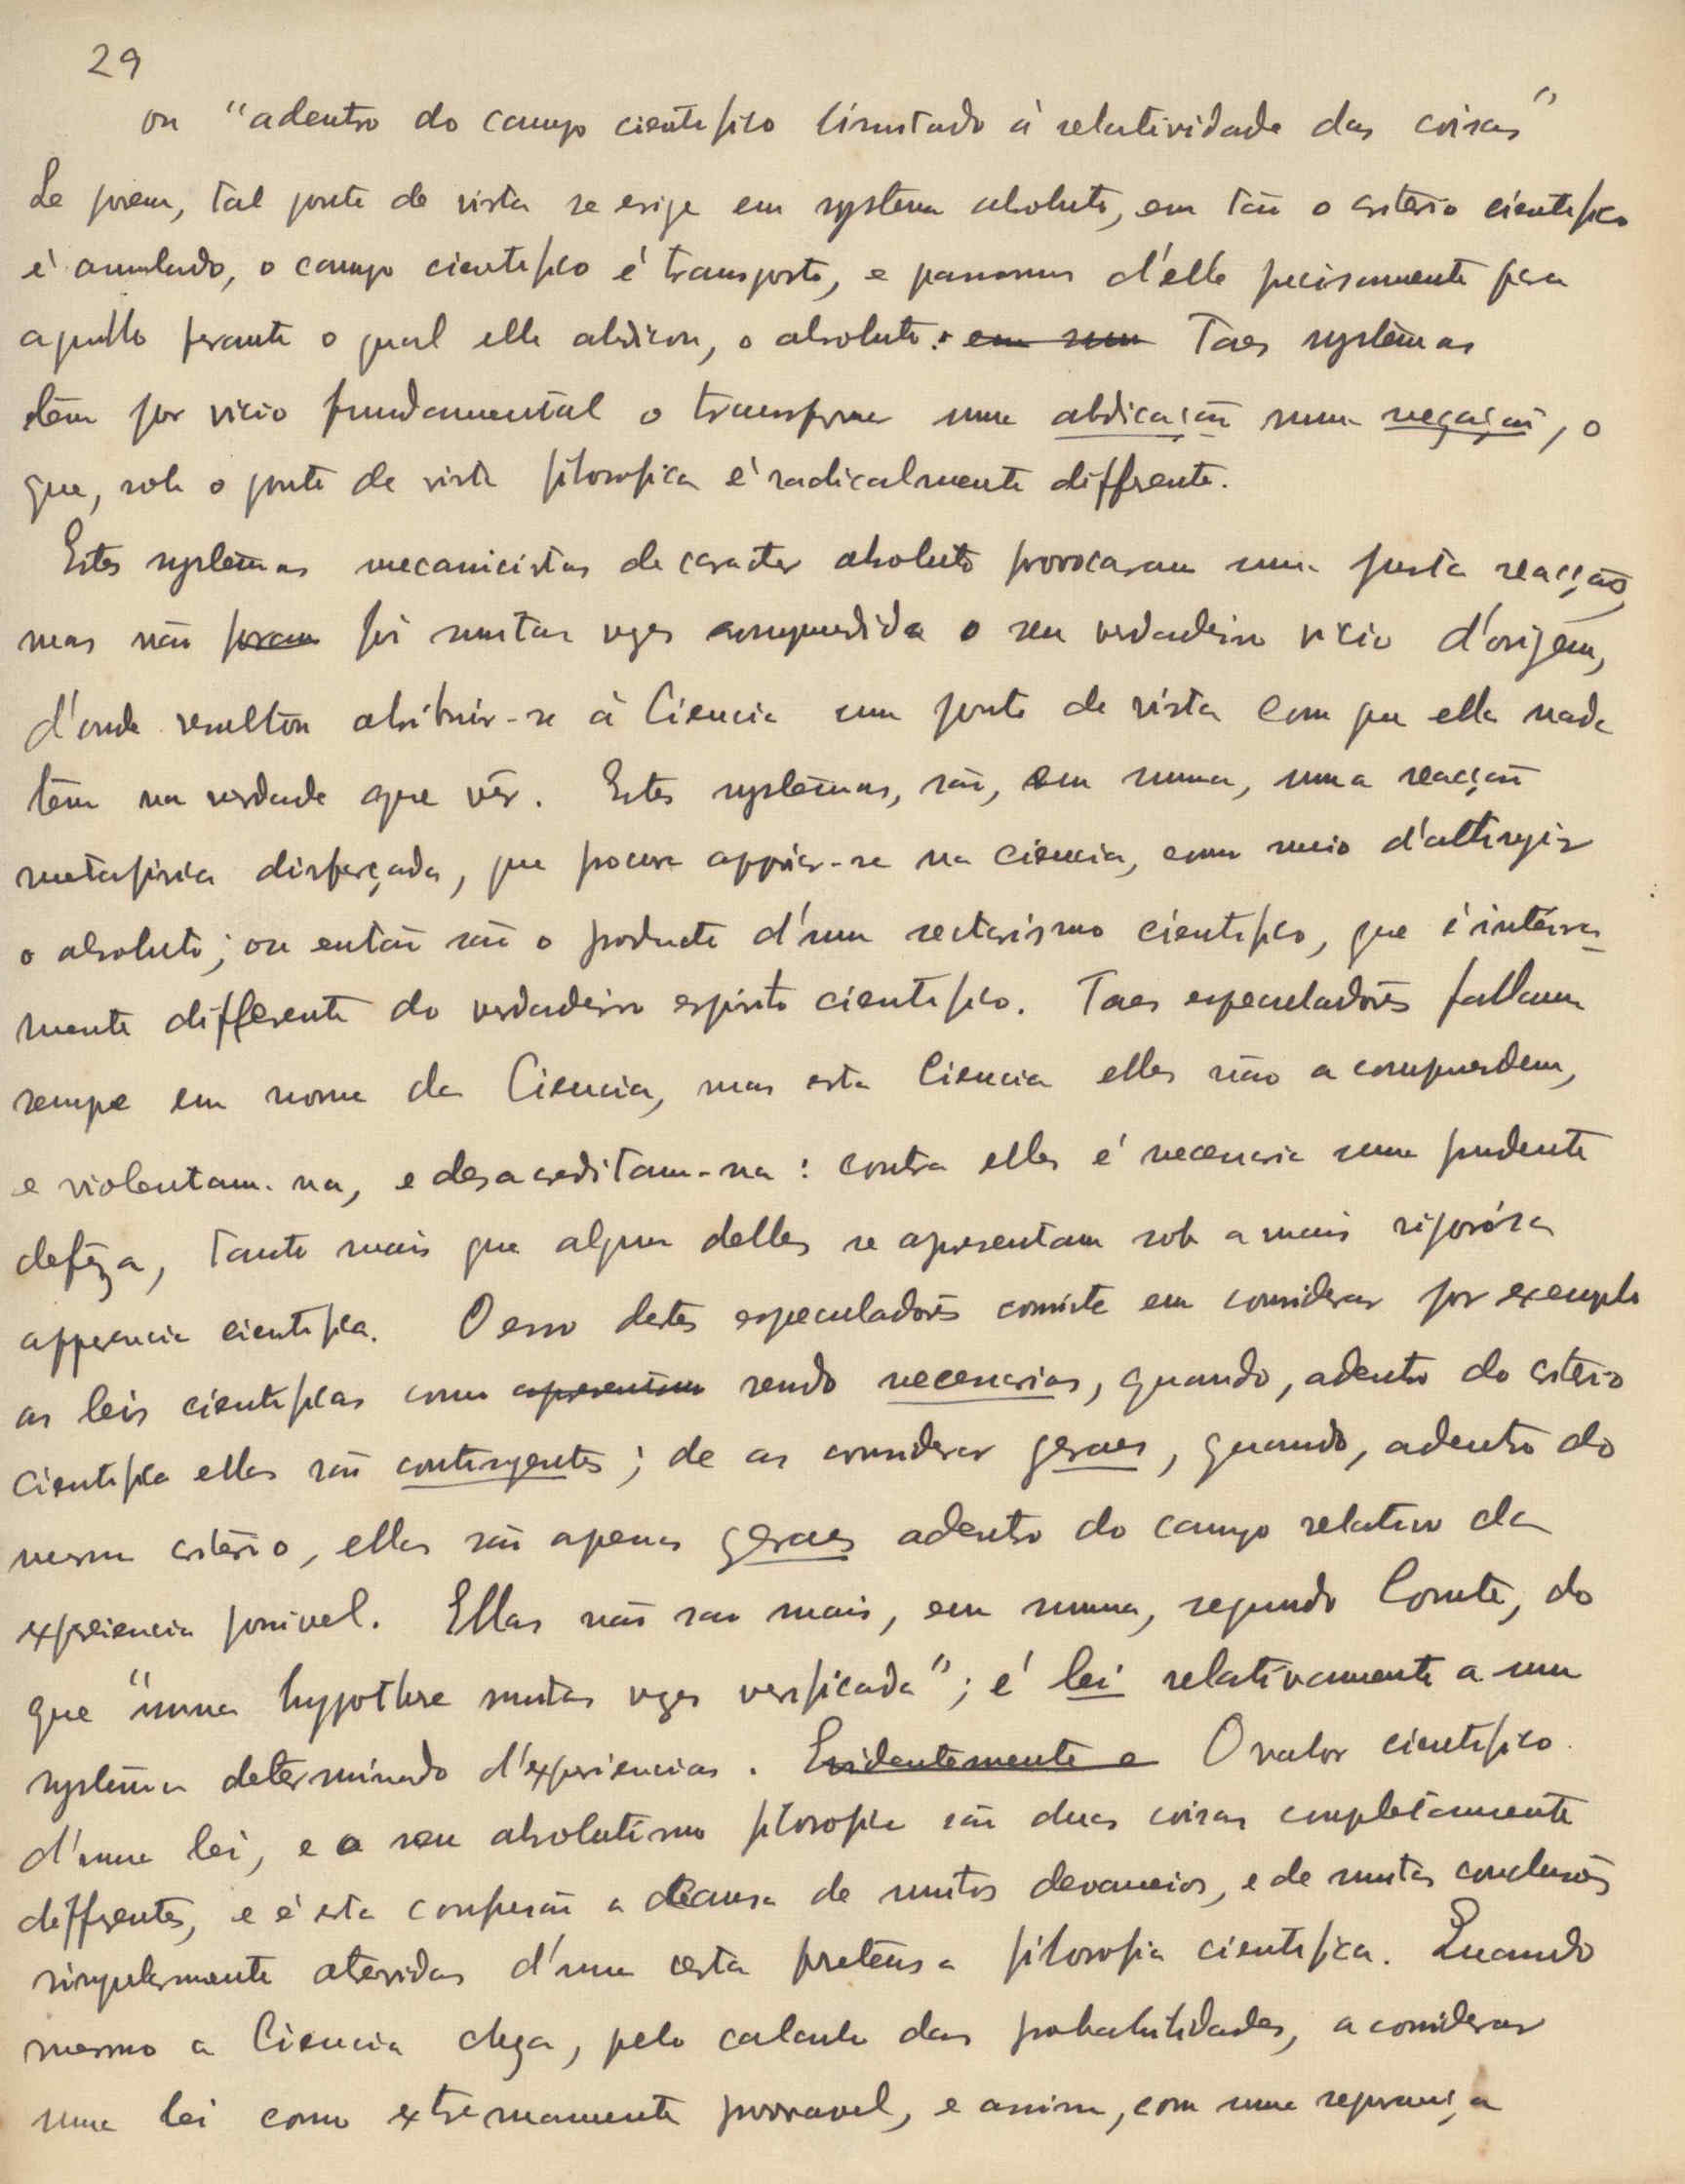 29
ou "adentro do campo cientifico limitado á relatividade das coisas"
Se porem, tal ponto de vista se erige em systema absoluto, em tão o critério cientifico
é annulado, o campo cientifico é transposto, e passamos d'elle precisamente para
aquillo perante o qual elle abdicou, o absoluto: em sum Taes systemas
têm por vicio fundamental o transformar uma abdicação numa negação, o
que, sob o ponto de vista filosofico é radicalmente differente.
Estes systemas mecanicistas de caracter absoluto provocaram uma justa reacção,
mas não foram foi muitas vezes comprehendido o seu verdadeiro vicio d'origem,
d'onde resultou atribuir-se á Ciencia um ponto de vista com que ella nada
têm na verdade que vêr. Estes systemas, são, em summa, uma reacção
metafisica disfarçada, que procura appoiar-se na ciencia, como meio d'attingir
o absoluto; ou então são o producto d'um sectarismo cientifico, que é inteira-
mente differente do verdadeiro espirito cientifico. Taes especuladores fallam
sempre em nome da Ciencia, mas esta Ciencia elles não a comprehendem,
e violentam-na, e desacreditam-na: contra elles é necessaria uma prudente
defeza, tanto mais que alguns delles se apresentam sob a mais rigorósa
apparencia cientifica. O erro destes especuladores consiste em considerar por exemplo
as leis cientificas como apresentam sendo necessarias, quando, adentro do critério
cientifico ellas são contingentes; de as considerar geraes, quando, adentro do
mesmo critério, ellas são apenas geraes adentro do campo relativo da
experiencia possivel. Ellas não são mais, em summa, segundo Comte, do
que "uma hypothese muitas vezes verificada"; é lei relativamente a um
systema determinado d'experiencias. Evidentemente o O valor cientifico
d'uma lei, e o seu absolutismo filosofico são duas coisas completamente
differentes, e é esta confusão a causa de muitos devaneios, e de muitas conclusões
singularmente atrevidas d'uma certa pretensa filosofia cientifica. Quando
mesmo a Ciencia chega, pelo calculo das probabilidades, a considerar
uma lei como extremamente provavel, e assim, com uma segurança